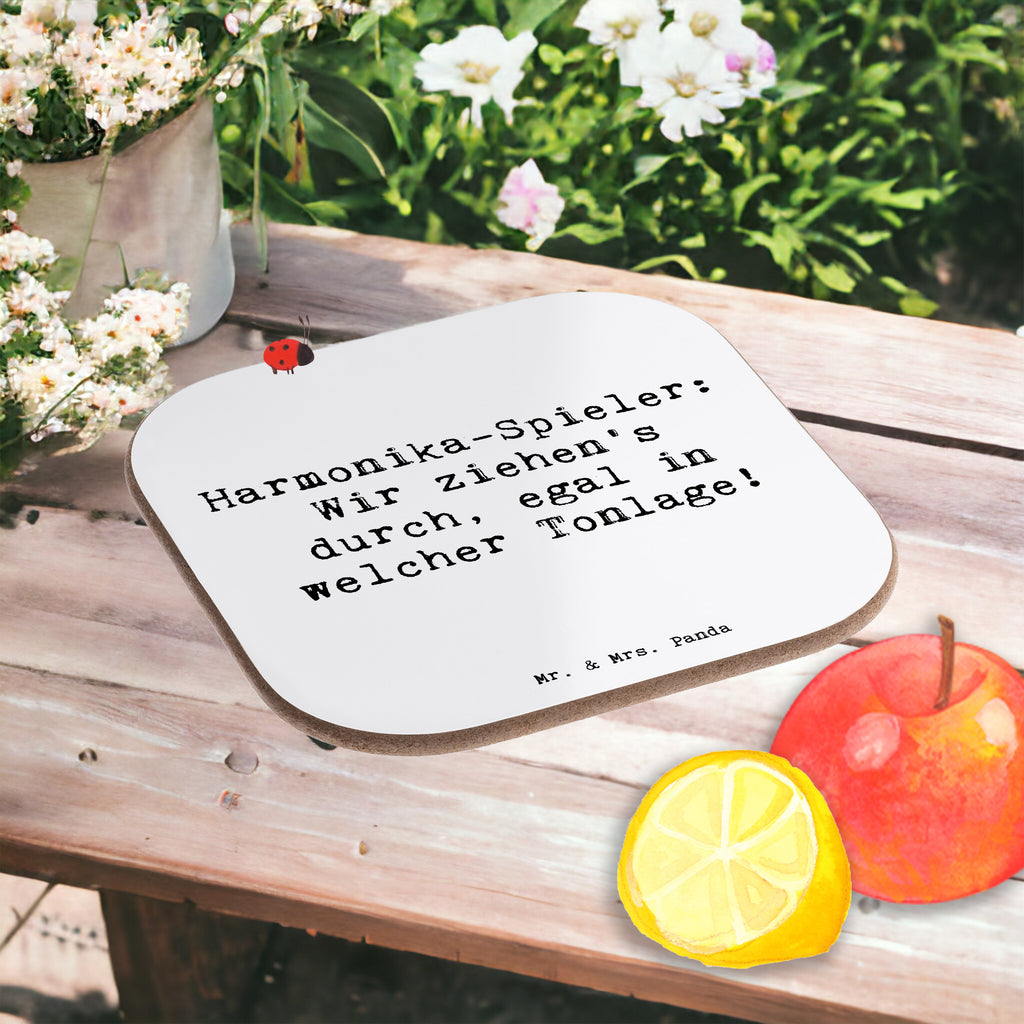 Harmonika-Spieler:
Wir ziehen's
durch, egal in
welcher Tonlage!
Mr. & Mrs. Panda